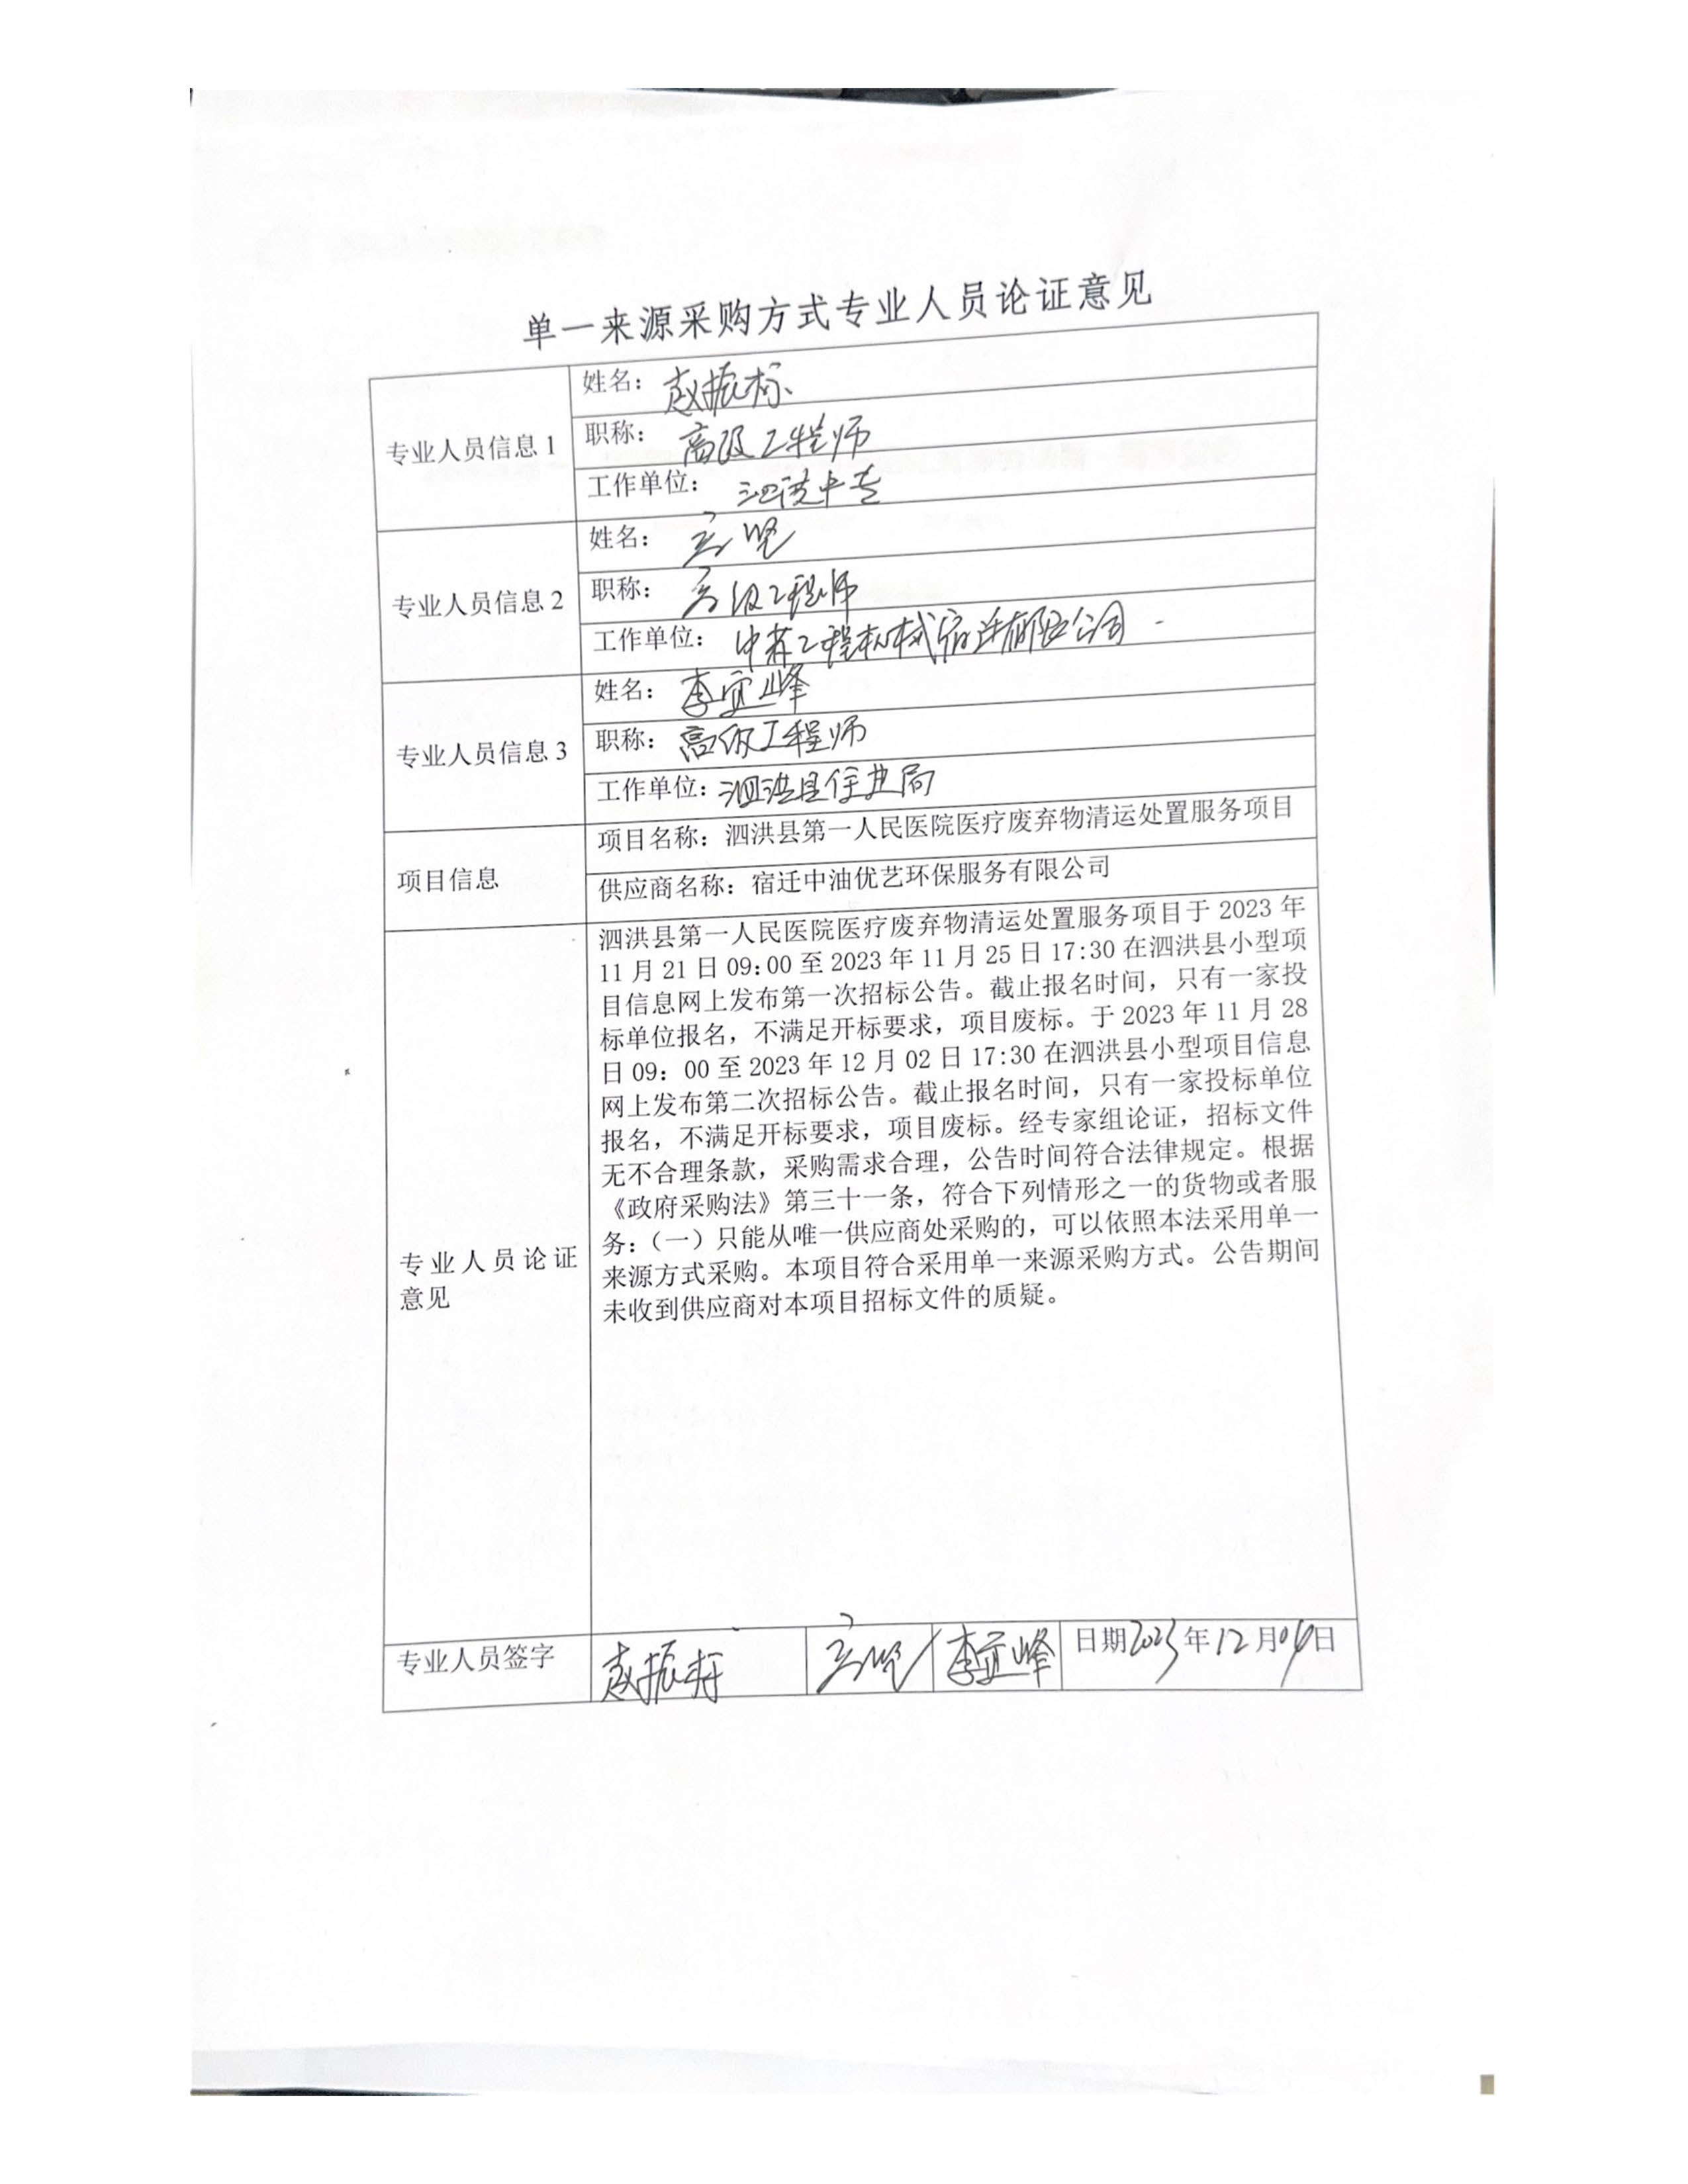 单一来源采购方式专业人员论证意见
专业人员信息1
姓名：赵振标
职称：高级工程师
工作单位：泗洪中专
专业人员信息2
姓名：高
职称：高级工程师
工作单位：中苏工程机械宿迁有限公司
专业人员信息3
姓名：李宜峰
职称：高级工程师
工作单位：泗洪县住建局
项目信息
项目名称：泗洪县第一人民医院医疗废弃物清运处置服务项目
供应商名称：宿迁中油优艺环保服务有限公司
专业人员论证
意见
泗洪县第一人民医院医疗废弃物清运处置服务项目于 2023 年
11 月 21 日 09:00 至 2023 年 11 月 25 日 17:30 在泗洪县小型项
目信息网上发布第一次招标公告。截止报名时间，只有一家投
标单位报名，不满足开标要求，项目废标。于 2023 年 11 月 28
日 09：00 至 2023 年 12 月 02 日 17:30 在泗洪县小型项目信息
网上发布第二次招标公告。截止报名时间，只有一家投标单位
报名，不满足开标要求，项目废标。经专家组论证，招标文件
无不合理条款，采购需求合理，公告时间符合法律规定。根据
《政府采购法》第三十一条，符合下列情形之一的货物或者服
务：（一）只能从唯一供应商处采购的，可以依照本法采用单一
来源方式采购。本项目符合采用单一来源采购方式。公告期间
未收到供应商对本项目招标文件的质疑。
专业人员签字
赵振标 高 李宜峰 日期2023年12月04日